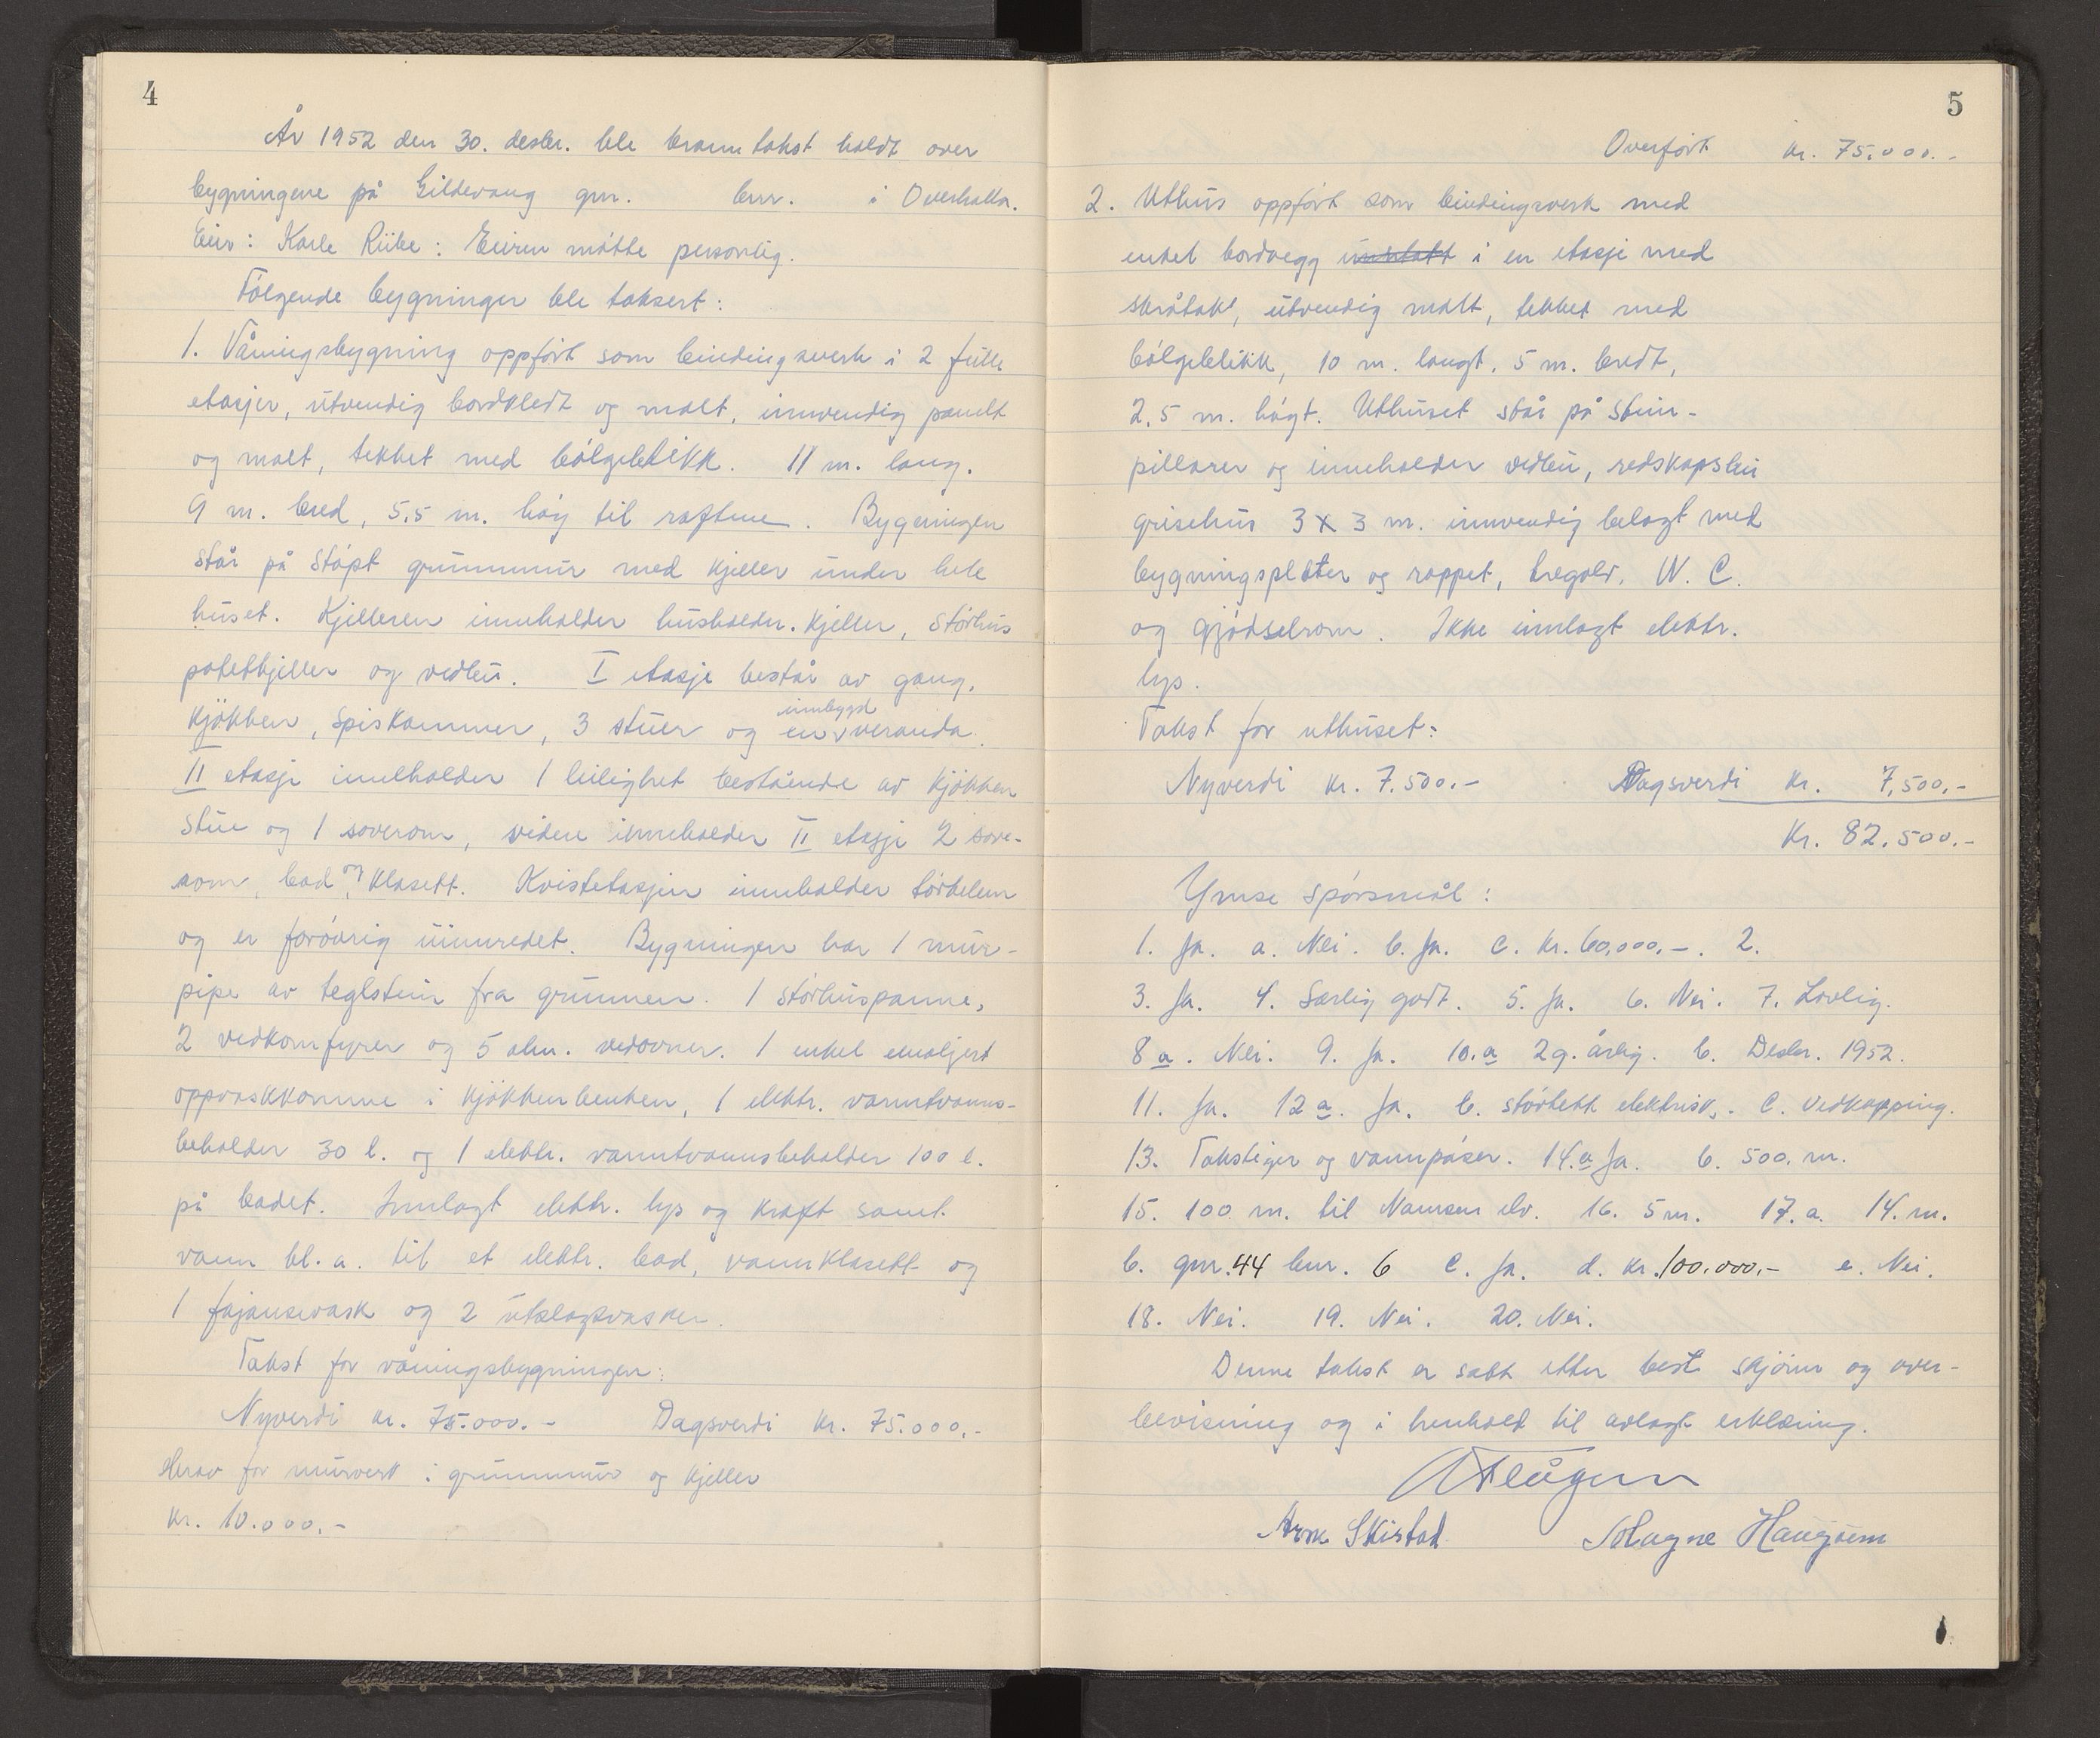 4
År 1952 den 30. desbr. ble branntakst holdt over
bygningene på Gildevang gnr. bnr. i Overhalla.
Eier: Karle Riibe: Eieren møtte personlig.
Følgende bygninger ble taksert:
1. Våningsbygning oppført som bindingsverk i 2 fulle
etasjer, utvendig bordkledt og malt, innvendig panelt
og malt, tekket med bølgeblikk. 11 m. lang.
9 m. bred, 5,5 m. høy til raftene. Bygningen
står på støpt grunnmur med kjeller under hele
huset. Kjelleren inneholder husholdn. kjeller, størhus
potetkjeller og vedbu. I etasje består av gang,
kjøkken, spiskammer, 3 stuer og en innbygd veranda.
II etasje innelholder 1 leilighet bestående av kjøkken
stue og 1 soverom, videre inneholder II etasje 2 sove-
rom, bad og klosett. Kvistetasjen inneholder tørkelem
og er forøvrig uinnredet. Bygningen har 1 mur-
pipe av teglstein fra grunnen. 1 størhuspanne,
2 vedkomfyrer og 5 alm. vedovner. 1 enkel emaljert
oppvaskkomme i kjøkkenbenken, 1 elektr. varmtvanns-
beholder 30 l. og 1 elektr. varmtvannsbeholder 100 l.
på badet. Innlagt elektr. lys og kraft samt.
vann bl. a. til et elektr. bad, vannklosett og
1 fajansevask og 2 utslagsvasker.
Takst for våningsbygningen:
Nyverdi kr. 75.000.- Dagsverdi kr. 75.000.-
Herav for murverk i grunnmur og kjeller
kr. 10.000.-
5
Overført kr. 75.000.-
2. Uthus oppført som bindingsverk med
enkel bordvegg i en etasje med
skråtak, utvendig malt, tekket med
bølgeblikk, 10 m. langt, 5 m. bredt,
2,5 m. høgt. Uthuset står på stein-
pillarer og inneholder vedbu, redskapsbu
grisehus 3 x 3 m. innvendig belagt med
bygningsplater og rappet, tregolv, W. C.
og gjødselrom. Ikke innlagt elektr.
lys.
Takst for uthuset:
Nyverdi kr. 7.500.- Dagsverdi kr. 7,500.-
Kr. 82.500.-
Ymse spørsmål:
1. Ja. a. Nei. b. Ja. c. Kr. 60,000,-. 2.
3. Ja. 4. Særlig godt. 5. Ja. 6. Nei. 7. Lovlig.
8 a. Nei. 9. Ja. 10. a 2 g. årlig. b. Desbr. 1952.
11. Ja. 12 a. Ja. b. størtett elektrisk. c. Vedkapping.
13. Takstiger og vannpøser. 14. a Ja. b. 500. m.
15. 100 m. til Namsen elv. 16. 5 m. 17. a. 14. m.
b. gnr. 44 bnr. 6 c. Ja. d. kr. 100.000,- e. Nei.
18. Nei. 19. Nei. 20. Nei.
Denne takst er satt etter best skjønn og over-
bevisning og i henhold til avlagt erklæring.
Arne Skistad Magne Haugsem